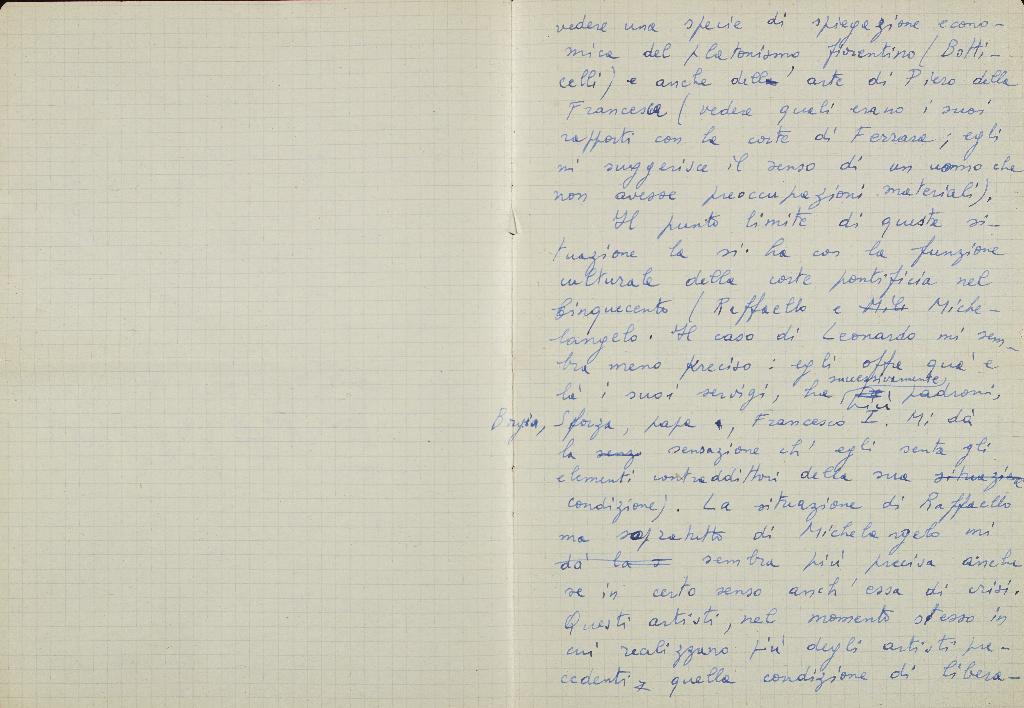 vedere una specie di spiegazione econo-
mica del platonismo fiorentino (Botti-
celli) e anche dell' arte di Piero della
Francesca (vedere quali erano i suoi
rapporti con la corte di Ferrara; egli
mi suggerisce il senso di un uomo che
non avesse preoccupazioni materiali).
Il punto limite di questa si-
tuazione la si ha con la funzione
culturale della corte pontificia nel
Cinquecento (Raffaello e Mih Miche-
langelo. Il caso di Leonardo mi sem-
bra meno preciso: egli offre qua e
successivamente
là i suoi servigi, ha più padroni,
Borgia, Sforza, papa, Francesco I. Mi dà
la senz sensazione ch' egli senta gli
elementi contraddittori della sua situazione
condizione). La situazione di Raffaello
ma sopratutto di Michelangelo mi
dà la s sembra più precisa anche
se in certo senso anch' essa di crisi.
Questi artisti, nel momento stesso in
cui realizzano più degli artisti pre-
cedenti quella condizione di libera-